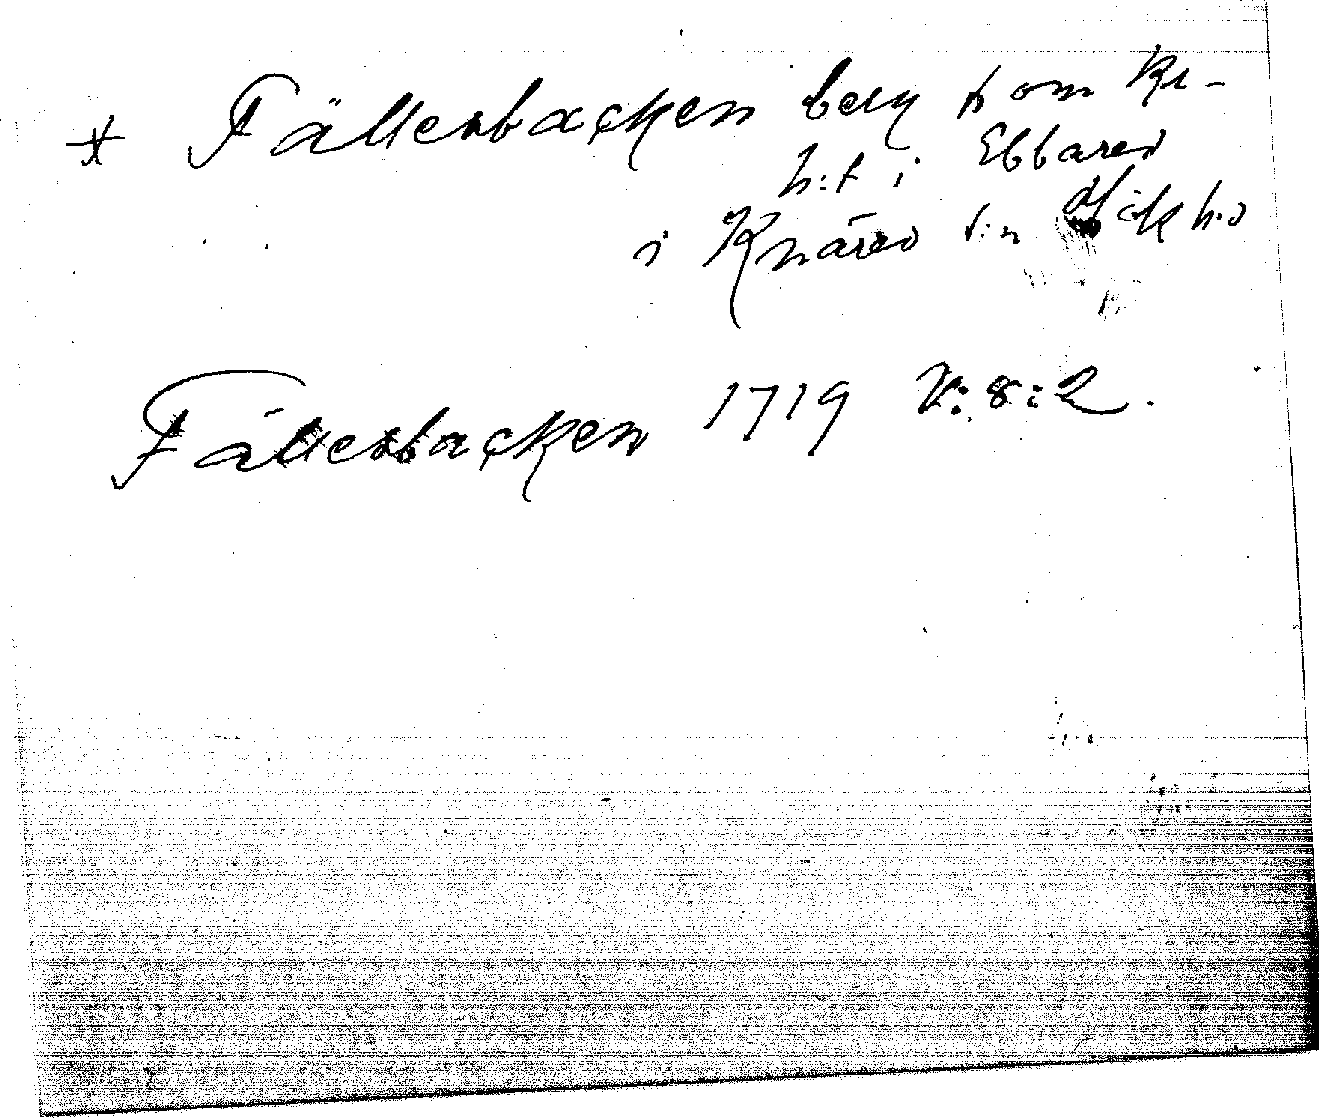 * Fällesbacken berg som kr-
h:t i Ebbared
i Knäred s:n Hök h:d
Fällesbacken 1719 V:8:2.